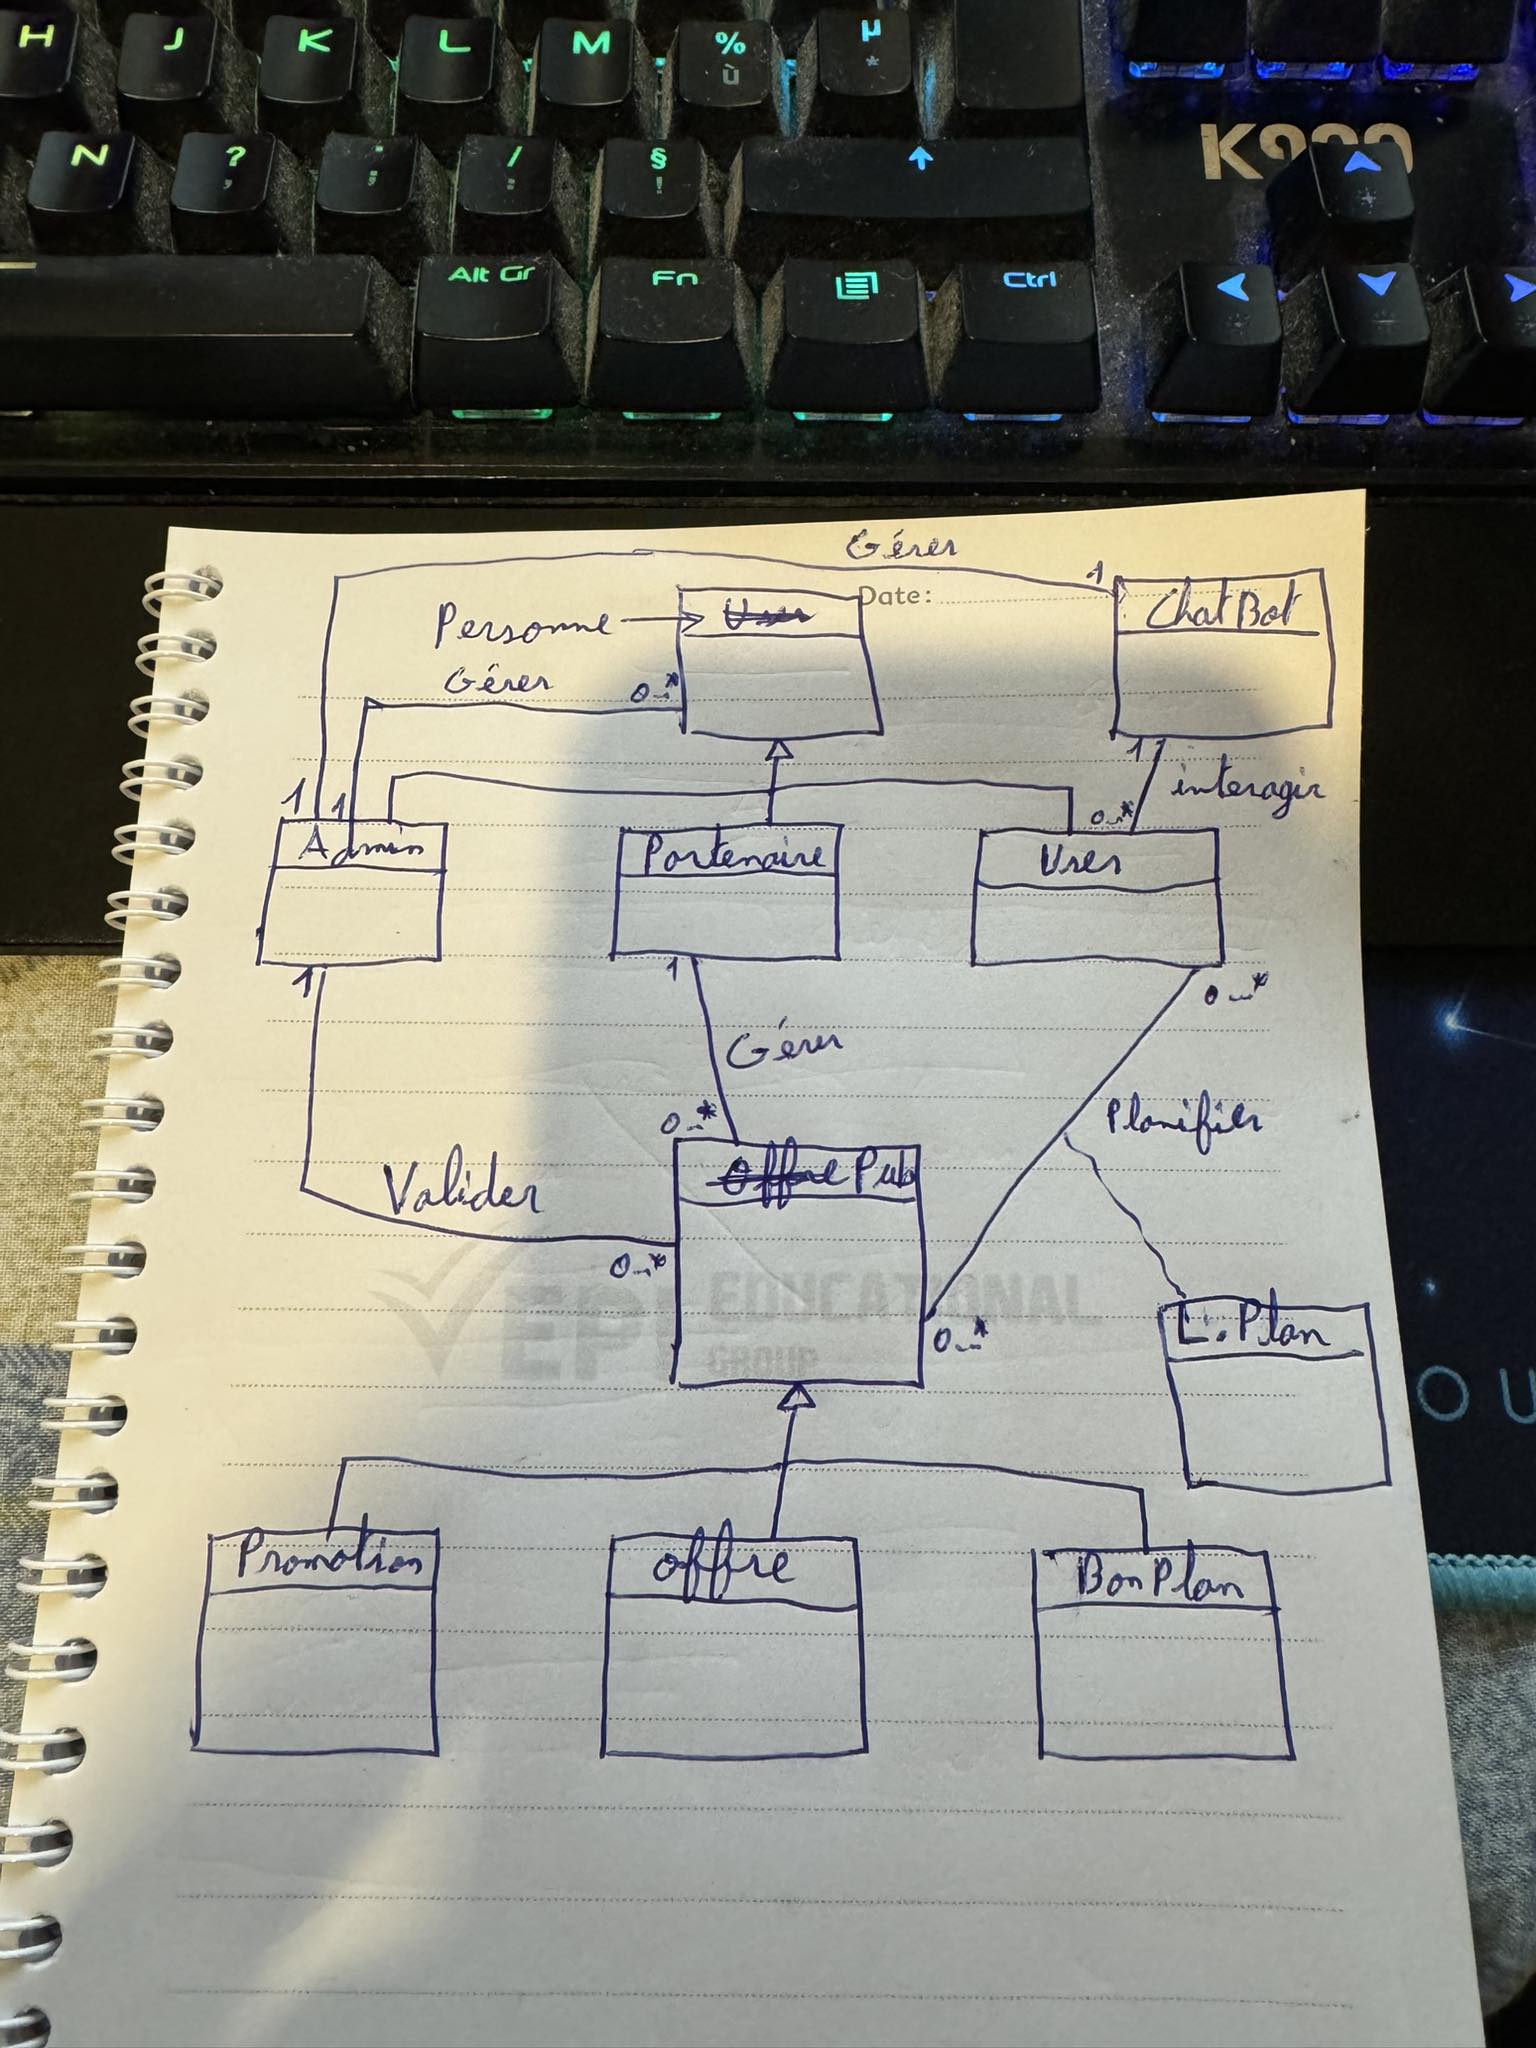 H J K L M % µ
ù *
N ? . / §
, ; : !
K900
Alt Gr Fn Ctrl
Gérer
1
Date:
ChatBot
Personne
User
Gérer
0..*
1 1
1
interagir
0..*
Admin
Partenaire
User
1
1
0..*
Gérer
Planifier
0..*
Offre Pub
Valider
0..*
EPI EDUCATIONAL
GROUP
0..*
L.Plan
OU
Promotion
offre
BonPlan